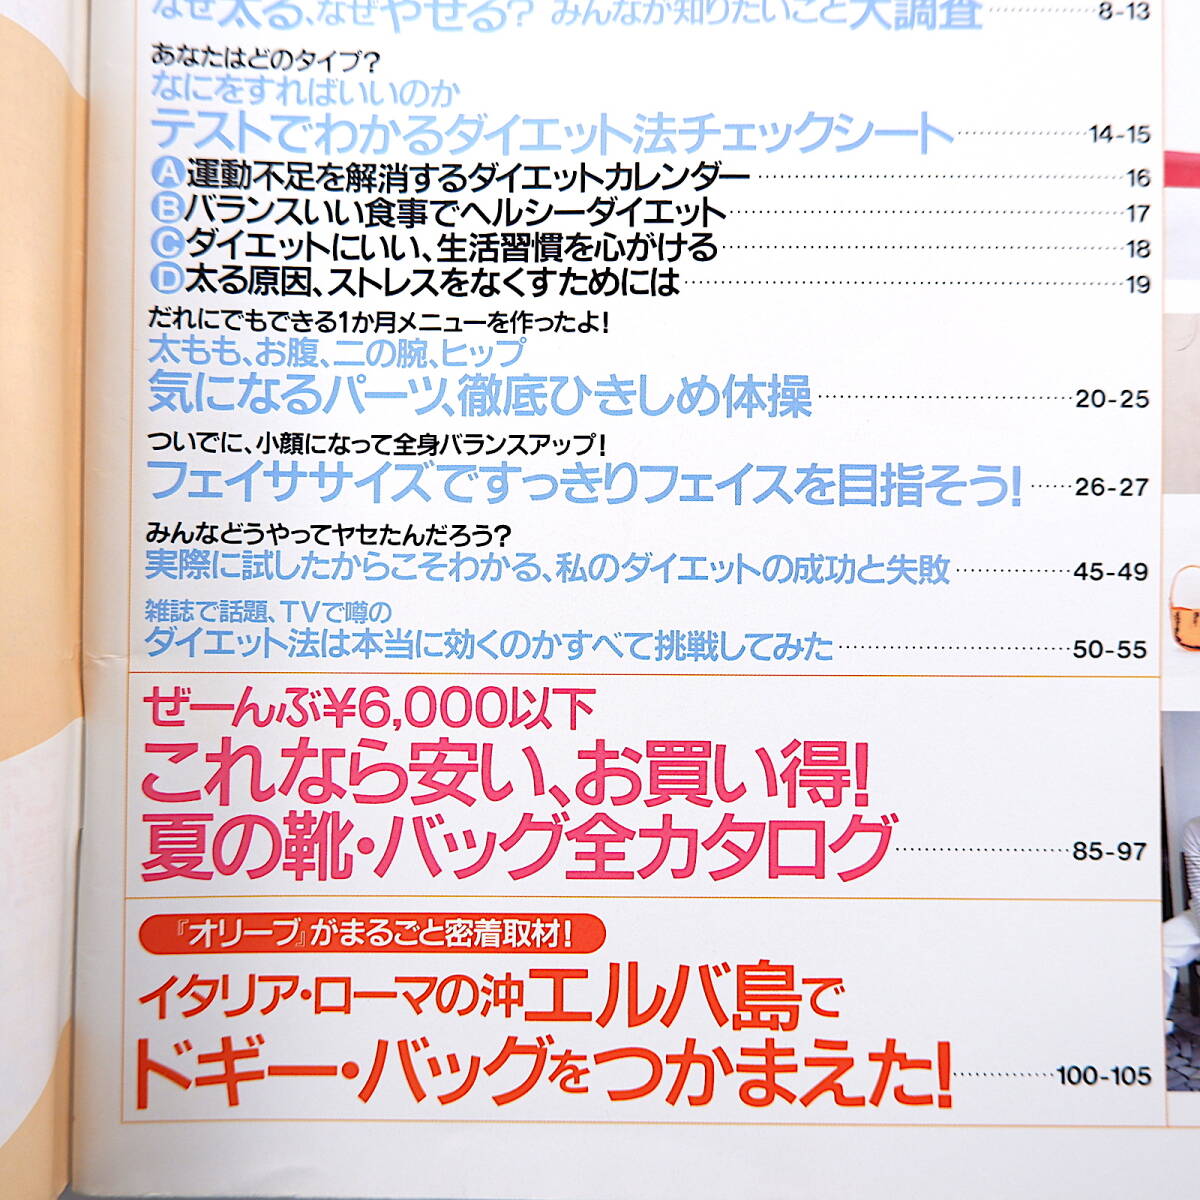 なぜ太る、なぜやせる? みんなが知りたいこと大調査 8-13
あなたはどのタイプ?
なにをすればいいのか
テストでわかるダイエット法チェックシート 14-15
A運動不足を解消するダイエットカレンダー 16
Bバランスいい食事でヘルシーダイエット 17
Cダイエットにいい、生活習慣を心がける 18
D太る原因、ストレスをなくすためには 19
だれにでもできる1か月メニューを作ったよ!
太もも、お腹、二の腕、ヒップ
気になるパーツ、徹底ひきしめ体操 20-25
ついでに、小顔になって全身バランスアップ!
フェイササイズですっきりフェイスを目指そう! 26-27
みんなどうやってヤセたんだろう?
実際に試したからこそわかる、私のダイエットの成功と失敗 45-49
雑誌で話題、TVで噂の
ダイエット法は本当に効くのかすべて挑戦してみた 50-55
ぜーんぶ¥6,000以下
これなら安い、お買い得!
夏の靴・バッグ全カタログ 85-97
『オリーブ』がまるごと密着取材!
イタリア・ローマの沖エルバ島で
ドギー・バッグをつかまえた! 100-105